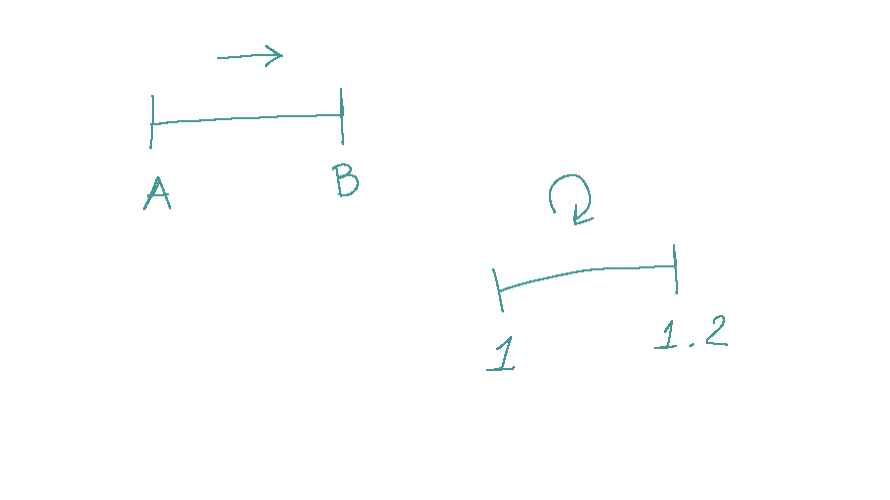 A B
1 1.2